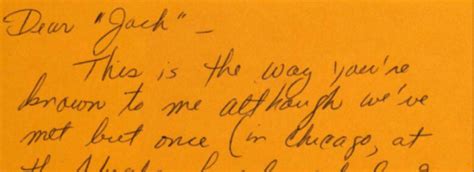 Dear "Jack" —
This is the way you're
known to me although we've
met but once (in Chicago, at
the